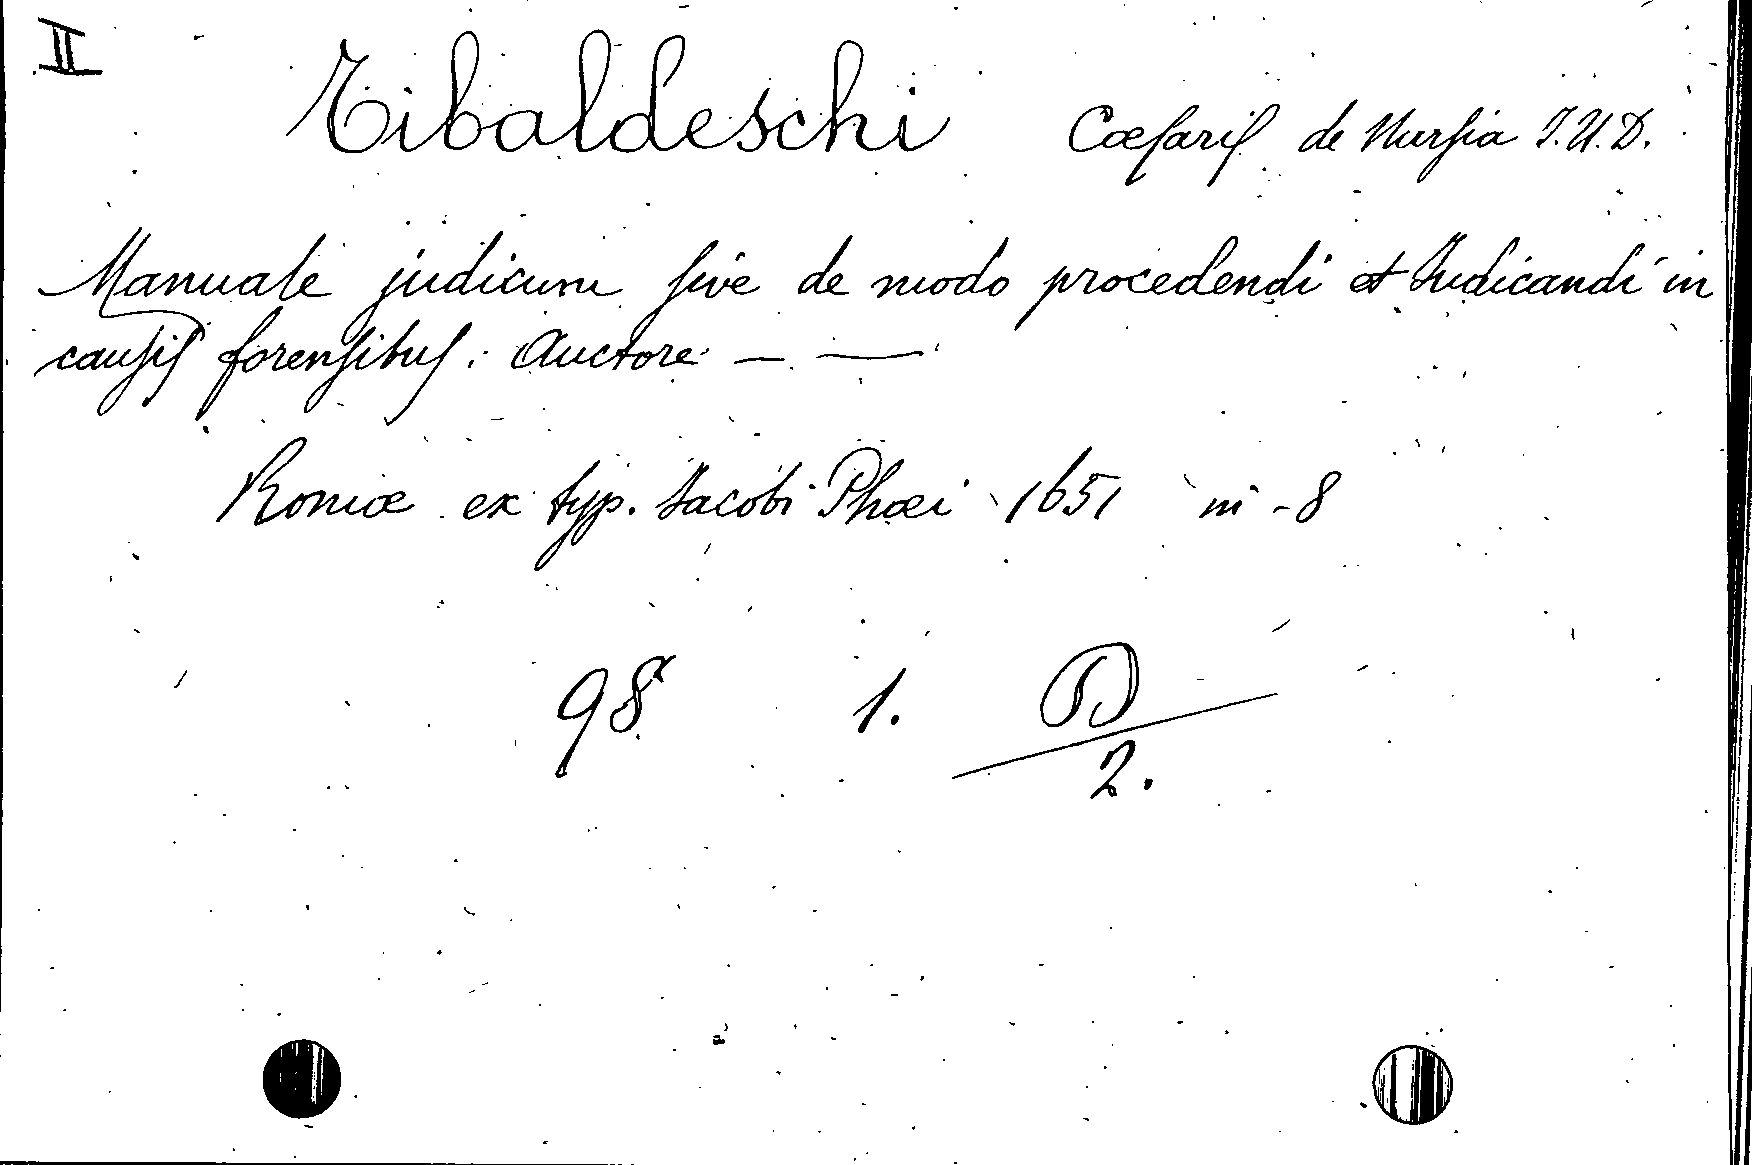 II
Tibaldeschi Cæsaris de Nursia J.U.D.
Manuale judicum sive de modo procedendi et Judicandi in
causis forensibus. Auctore — —
Romæ ex typ. Jacobi Phæi 1651 in -8
98 1. D
2.